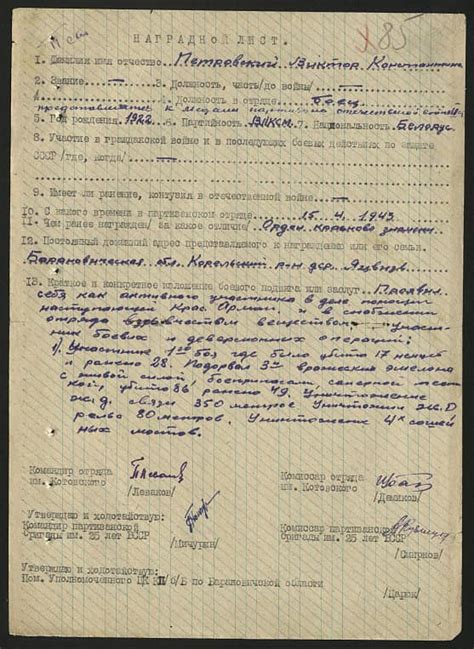 85
НАГРАДНОЙ ЛИСТ.
1. Фамилия имя отчество Петровский Виктор Константин
2. Звание — 3. Должность, часть/до войны/ —
4. Должность в отряде боец
представляется к медали партизану отечественной войны
5. Год рождения 1922 6. Партийность ВЛКСМ 7. Национальность Белорус
8. Участие в гражданской войне и в последующих боевых действиях по защите
СССР /где, когда/ —
9. Имеет ли ранение, контузия в отечественной войне —
10. С какого времени в партизанском отряде 15.4.1943
11. Чем ранее награжден/ за какое отличие/ Орден красного знамени
12. Постоянный домашний адрес представляемого к награждению или его семьи
Барановическая обл. р-н дер.
13. Краткое и конкретное изложение боевого подвига или заслуг Проявил
себя как активного участника в деле помощи
наступающей Крас. Армии и в снабжении
отряда взрывчатым веществом. Участ-
ник боевых и диверсионных операций:
1) Участник боя где было убито 17 немцев
и ранено 28. Подорвал 3 вражеских эшелона
с живой силой, боеприпасами,
убито 86 ранено 49. Уничтожение
ж.д. связи 350 метров Уничтожил ж.д
рельс 80 метров. Уничтожение 4х
ных мостов.
Командир отряда
им. Котовского
/Леваков/
Комиссар отряда
им. Котовского
/Демьяков/
Утверждаю и ходотайствую:
Командир партизанской
бригады им. 25 лет БССР
/Мичурин/
Комиссар партизанской
бригады им. 25 лет БССР
/Смирнов/
Утверждаю и ходотайствую:
Пом. Уполномоченного ЦК КП/б/Б по Барановичской области
/Царюк/